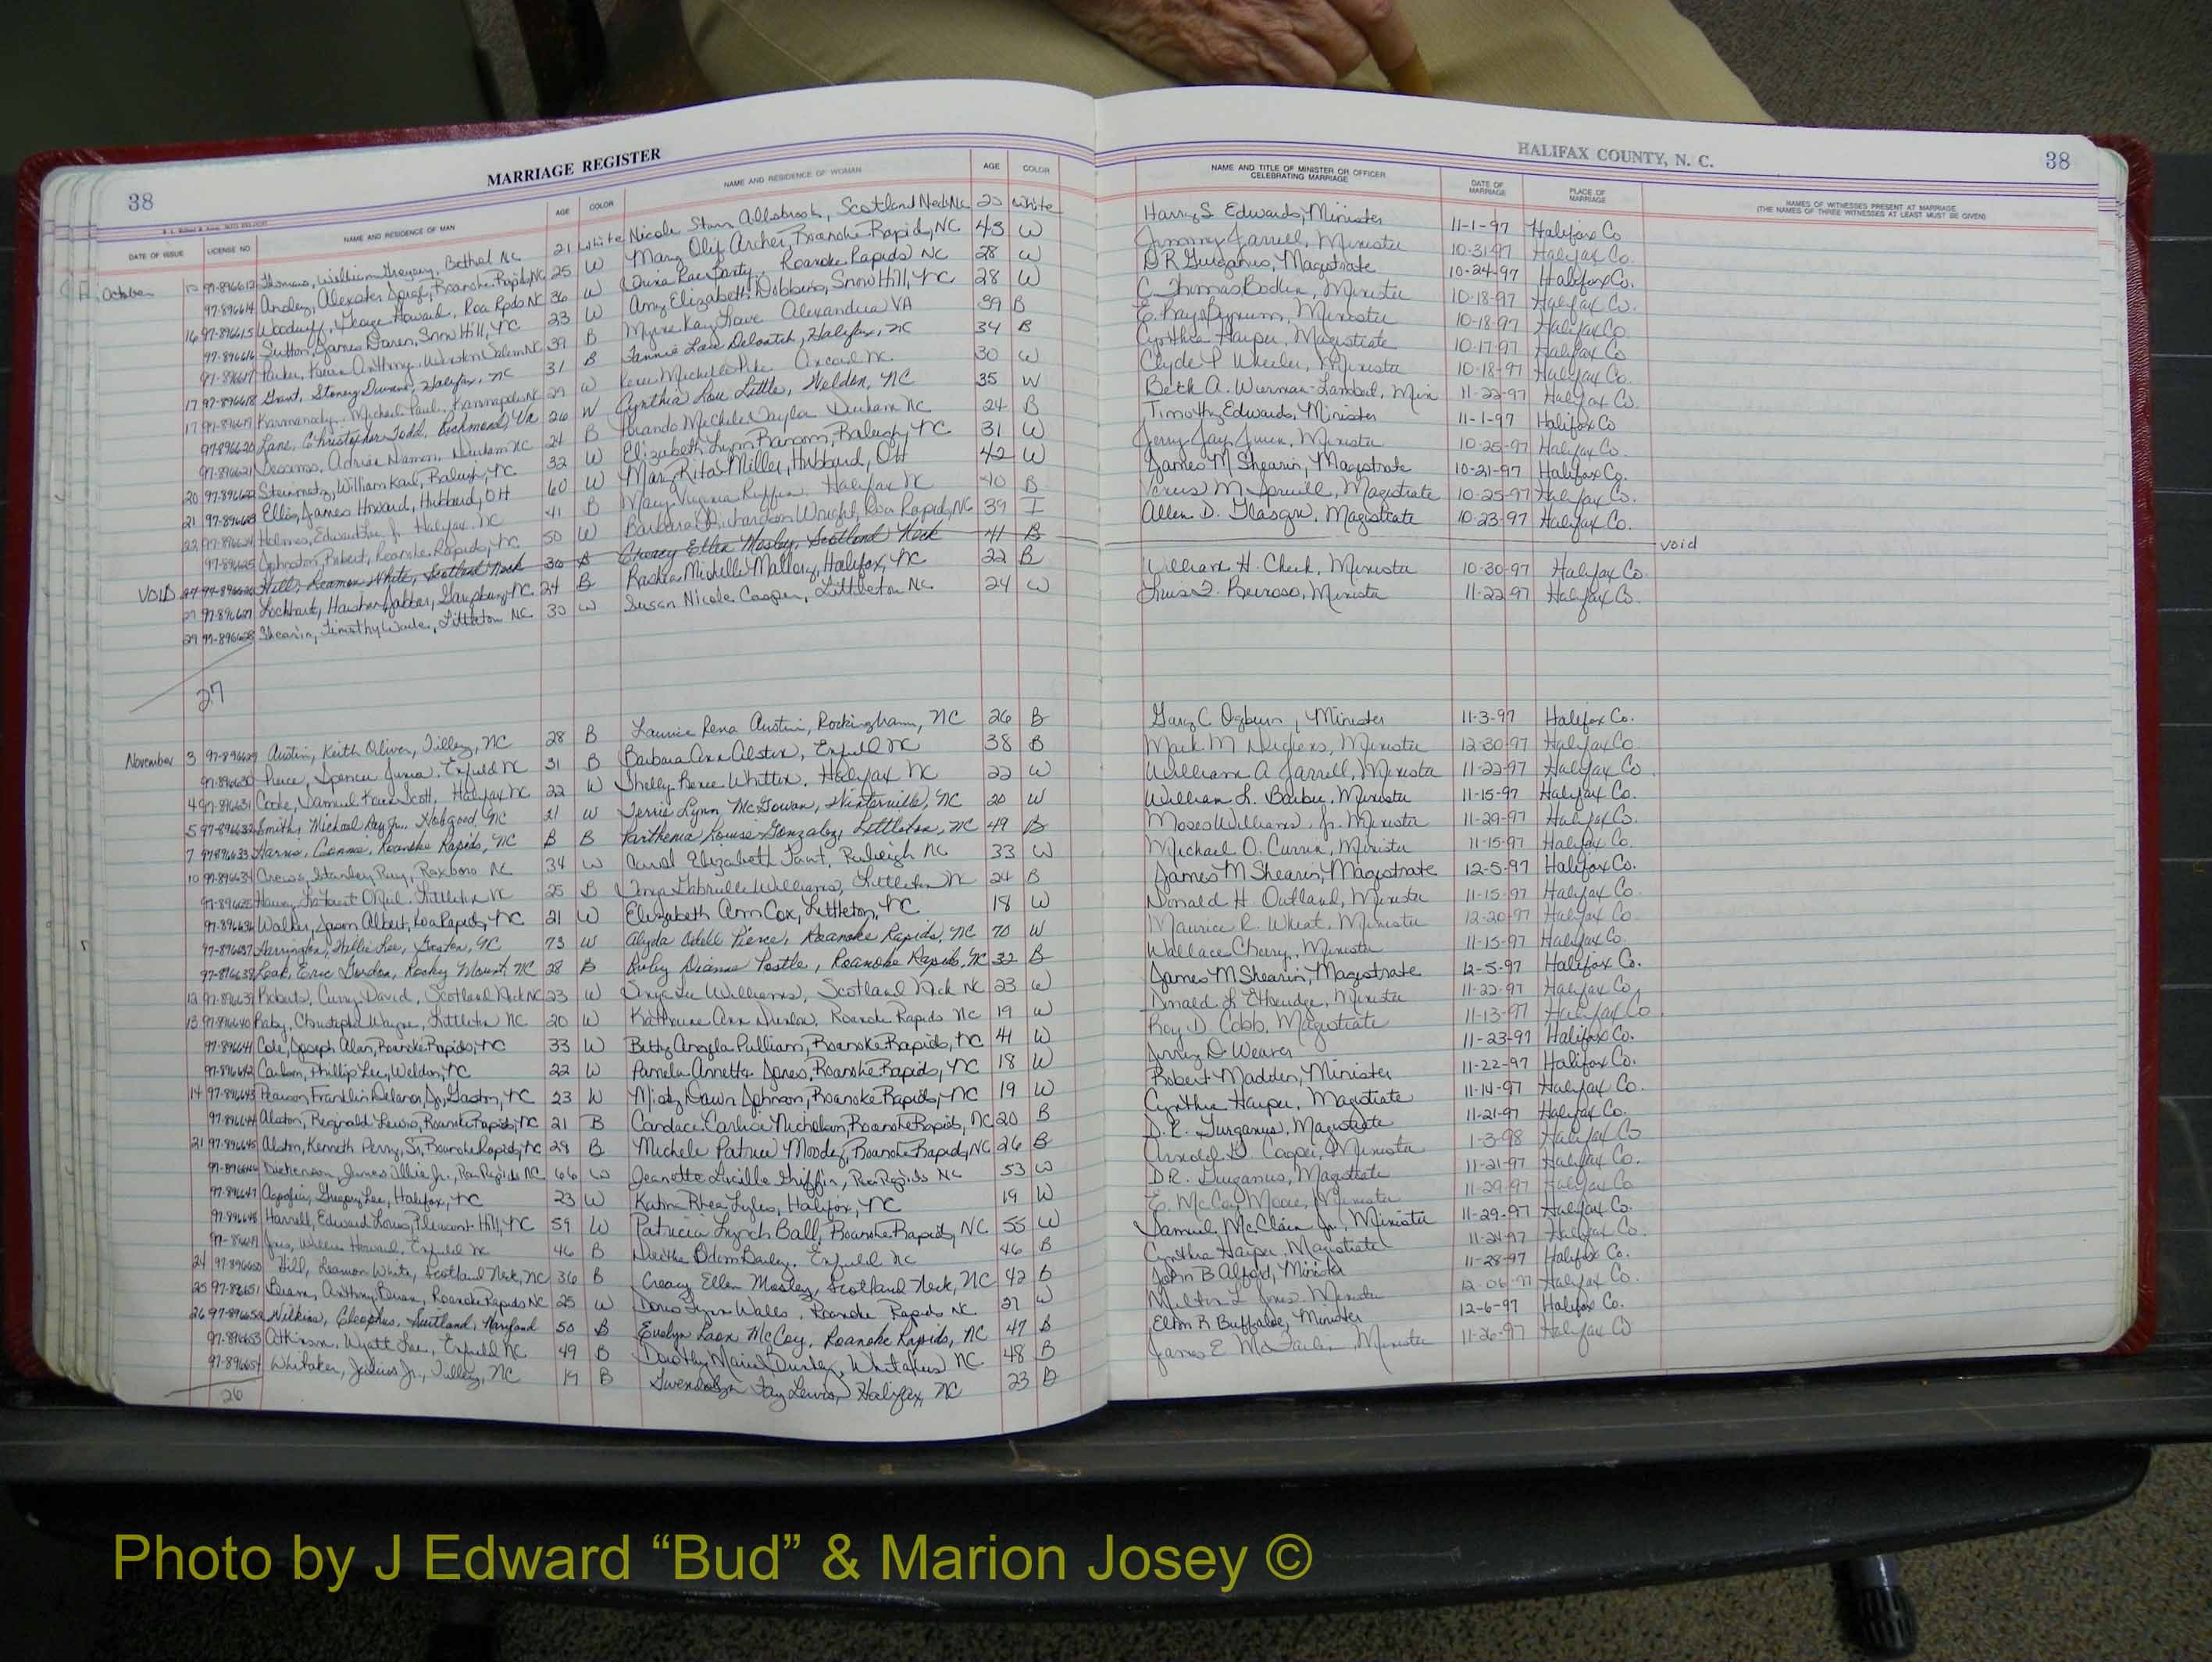 38
MARRIAGE REGISTER
HALIFAX COUNTY, N. C.
38
DATE OF ISSUE LICENSE NO NAME AND RESIDENCE OF MAN AGE COLOR NAME AND RESIDENCE OF WOMAN AGE COLOR NAME AND TITLE OF MINISTER OR OFFICER CELEBRATING MARRIAGE DATE OF MARRIAGE PLACE OF MARRIAGE NAMES OF WITNESSES PRESENT AT MARRIAGE (THE NAMES OF THREE WITNESSES AT LEAST MUST BE GIVEN)
October 97-896613 Thomas, William Gregory, Bethel NC 21 White Nicole Starr Allsbrook, Scotland Neck NC 20 White Harry S. Edwards, Minister 11-1-97 Halifax Co
97-896614 Ansley, Roanoke Rapids, NC 25 W Mary Archer, Roanoke Rapid, NC 43 W Jimmy Jarrell, Minister 10-31-97 Halifax Co.
16 97-896615 Woodruff, George Howard, Roa Rpds NC 36 W Rae Roanoke Rapids NC 28 W D R Gurganus, Magistrate 10-24-97 Halifax Co.
97-896616 Sutton, James Daren, Snow Hill, NC 23 W Amy Elizabeth Dobbins, Snow Hill, NC 28 W C. Thomas Minister 10-18-97 Halifax Co.
97-896617 Parker, Anthony, Winston Salem NC 39 B Kay Alexandria VA 39 B E. Ray Bynum, Minister 10-18-97 Halifax Co
17 97-896618 Grant, Stoney Halifax, NC 31 B Fannie Deloatch, Halifax, NC 34 B Cynthia Harper, Magistrate 10-17-97 Halifax Co
17 97-896619 Michael Paul, Kannapolis NC 29 W Michelle NC 30 W Clyde P Wheeler, Minister 10-18-97 Halifax Co.
97-896620 Lane, Christopher Todd, Richmond, Va 26 W Cynthia Lou Little, Weldon, NC 35 W Beth A. Min 11-22-97 Halifax Co.
97-896621 Adrian Damon, Durham NC 24 B Michele Taylor Durham NC 24 B Timothy Edwards, Minister 11-1-97 Halifax Co
20 97-896622 Steinmetz, William Karl, Raleigh, NC 32 W Elizabeth Lynn Ransom, Raleigh, NC 31 W Jerry Jay Minister 10-25-97 Halifax Co.
21 97-896623 Ellis, James Howard, Hubbard, OH 60 W Mary Rita Miller, Hubbard, OH 42 W James M Shearin, Magistrate 10-21-97 Halifax Co.
22 97-896624 Holmes, Edward Jr. Halifax NC 41 B Mary Virginia Ruffin, Halifax NC 40 B M Spruill, Magistrate 10-25-97 Halifax Co.
97-896625 Johnston, Robert, Roanoke Rapids, NC 50 W Barbara Richardson Wright, Roa Rapid, NC 39 I Allen D. Glasgow, Magistrate 10-23-97 Halifax Co.
VOID 27 97-896626 Hill, Leamon White, Scotland Neck 36 B Creacy Ellen Mosley, Scotland Neck 41 B void
27 97-896627 Lockhart, Garysburg, NC 24 B Rashia Michelle Mallory, Halifax, NC 22 B William H. Cheek, Minister 10-30-97 Halifax Co.
29 97-896628 Shearin, Timothy Wade, Littleton NC 30 W Susan Nicole Cooper, Littleton NC 24 W Minister 11-22-97 Halifax Co.
27
November 3 97-896629 Austin, Keith Oliver, Tillery, NC 28 B Laurice Rena Austin, Rockingham, NC 26 B Gary C. Ogburn, Minister 11-3-97 Halifax Co.
97-896630 Pierce, Spencer Junior, Enfield NC 31 B Barbara Ann Alston, Enfield NC 38 B Mark M Minister 12-30-97 Halifax Co
4 97-896631 Cooke, Samuel Scott, Halifax NC 22 W Shelly Renee Whitten, Halifax NC 22 W William A Jarrell, Minister 11-22-97 Halifax Co.
5 97-896632 Smith, Michael Ray Jr., Hobgood, NC 21 W Terrie Lynn McGowan, Winterville, NC 20 W William L. Barbee, Minister 11-15-97 Halifax Co.
7 97-896633 Harris, Roanoke Rapids, NC B B Parthenia Louise Gonzalez, Littleton, NC 49 B Moses Williams, Jr. Minister 11-29-97 Halifax Co.
10 97-896634 Crews, Stanley Ray, Roxboro NC 34 W Carol Elizabeth Raleigh NC 33 W Michael O. Currin, Minister 11-15-97 Halifax Co.
97-896635 Littleton NC 25 B Gabrielle Williams, Littleton NC 24 B James M Shearin, Magistrate 12-5-97 Halifax Co.
97-896636 Walker, Jason Albert, Roa Rapids, NC 21 W Elizabeth Ann Cox, Littleton, NC 18 W Donald H. Outland, Minister 11-15-97 Halifax Co
97-896637 Lee, Gaston, NC 73 W Alyda Odell Pierce, Roanoke Rapids, NC 70 W Maurice R. Wheat, Minister 12-20-97 Halifax Co
97-896638 Leak, Eric Gordon, Rocky Mount, NC 28 B Dianne Postle, Roanoke Rapids, NC 32 B Wallace Cherry, Minister 11-15-97 Halifax Co.
12 97-896639 Roberts, Curry David, Scotland Neck NC 23 W Williams, Scotland Neck NC 23 W James M Shearin, Magistrate 12-5-97 Halifax Co.
13 97-896640 Raby, Christopher Wayne, Littleton NC 20 W Katherine Ann Roanoke Rapids NC 19 W Donald L Etheridge, Minister 11-22-97 Halifax Co,
97-896641 Cole, Joseph Alan, Roanoke Rapids, NC 33 W Betty Angela Pulliam, Roanoke Rapids, NC 41 W Roy D. Cobb, Magistrate 11-13-97 Halifax Co
97-896642 Carlson, Phillip Lee, Weldon, NC 22 W Pamela Annette Jones, Roanoke Rapids, NC 18 W Jerry D Weaver 11-23-97 Halifax Co.
14 97-896643 Pearson Franklin Delano, Jr, Gaston, NC 23 W Misty Dawn Johnson, Roanoke Rapids, NC 19 W Robert Madden, Minister 11-22-97 Halifax Co.
97-896644 Alston, Reginald Lewis, Roanoke Rapids, NC 21 B Candace Nicholson, Roanoke Rapids, NC 20 B Cynthia Harper, Magistrate 11-14-97 Halifax Co.
21 97-896645 Alston, Kenneth Perry, Sr, Roanoke Rapids, NC 29 B Michele Patrice Moody, Roanoke Rapids, NC 26 B D.R. Gurganus, Magistrate 11-21-97 Halifax Co.
97-896646 Dickenson, James Jr., Roa Rapids NC 66 W Jeanette Lucille Griffin, Roa Rapids NC 53 W Arnold G. Cooper, Minister 1-3-98 Halifax Co
97-896647 Gregory Lee, Halifax, NC 23 W Katina Rhea Lyles, Halifax, NC 19 W D.R. Gurganus, Magistrate 11-21-97 Halifax Co.
97-896648 Harrell, Edward Louis, Pleasant Hill, NC 59 W Patricia Lynch Ball, Roanoke Rapids, NC 55 W E. McCoy Moore, Minister 11-29-97 Halifax Co
97-896649 Willie Howard, Enfield NC 46 B Odom Bailey, Enfield NC 46 B Samuel McClain Jr, Minister 11-29-97 Halifax Co.
24 97-896650 Hill, Leamon White, Scotland Neck, NC 36 B Creacy Ellen Mosley, Scotland Neck, NC 42 B Cynthia Harper, Magistrate 11-24-97 Halifax Co.
25 97-896651 Anthony Brian, Roanoke Rapids NC 25 W Doris Lynn Walls, Roanoke Rapids NC 27 W John B Alford, Minister 11-28-97 Halifax Co.
26 97-896652 Wilkins, Cleophus, Suitland, Maryland 50 B Evelyn Leon McCoy, Roanoke Rapids, NC 47 B Milton L Jones Minister 12-06-97 Halifax Co.
97-896653 Atkinson, Wyatt Lee, Enfield NC 49 B Dorothy Marie Whitakers NC 48 B Elton R Buffaloe, Minister 12-6-97 Halifax Co.
97-896654 Whitaker, Julius Jr., Tillery, NC 19 B Gwendolyn Fay Lewis, Halifax, NC 23 B James E. Minister 11-26-97 Halifax Co
26
Photo by J Edward “Bud” & Marion Josey ©